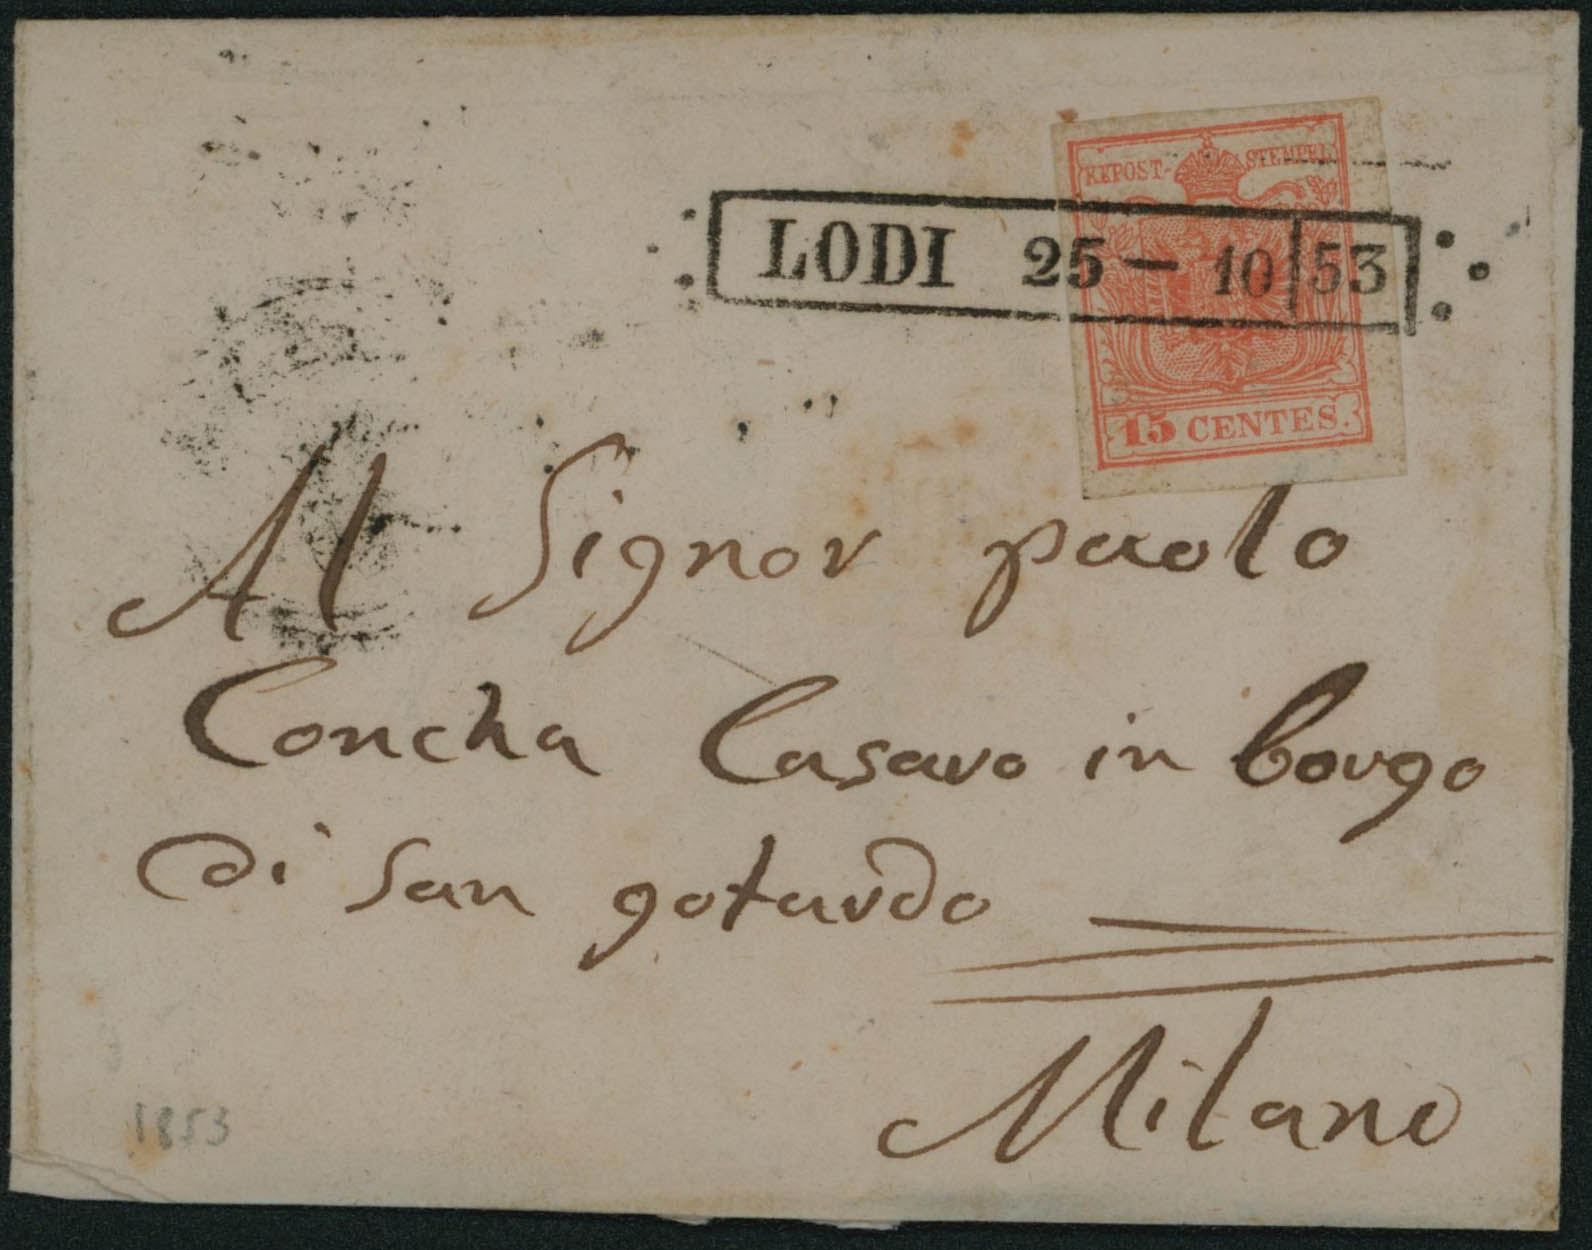 KKPOST-STEMPEL
LODI 25 — 10 53
15 CENTES.
Al Signor paolo
Concha Casaro in borgo
di san gotardo
Milano
1853